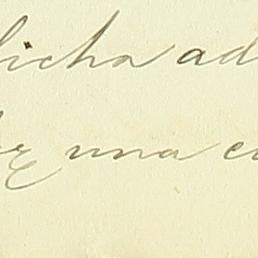 licha ad
una c